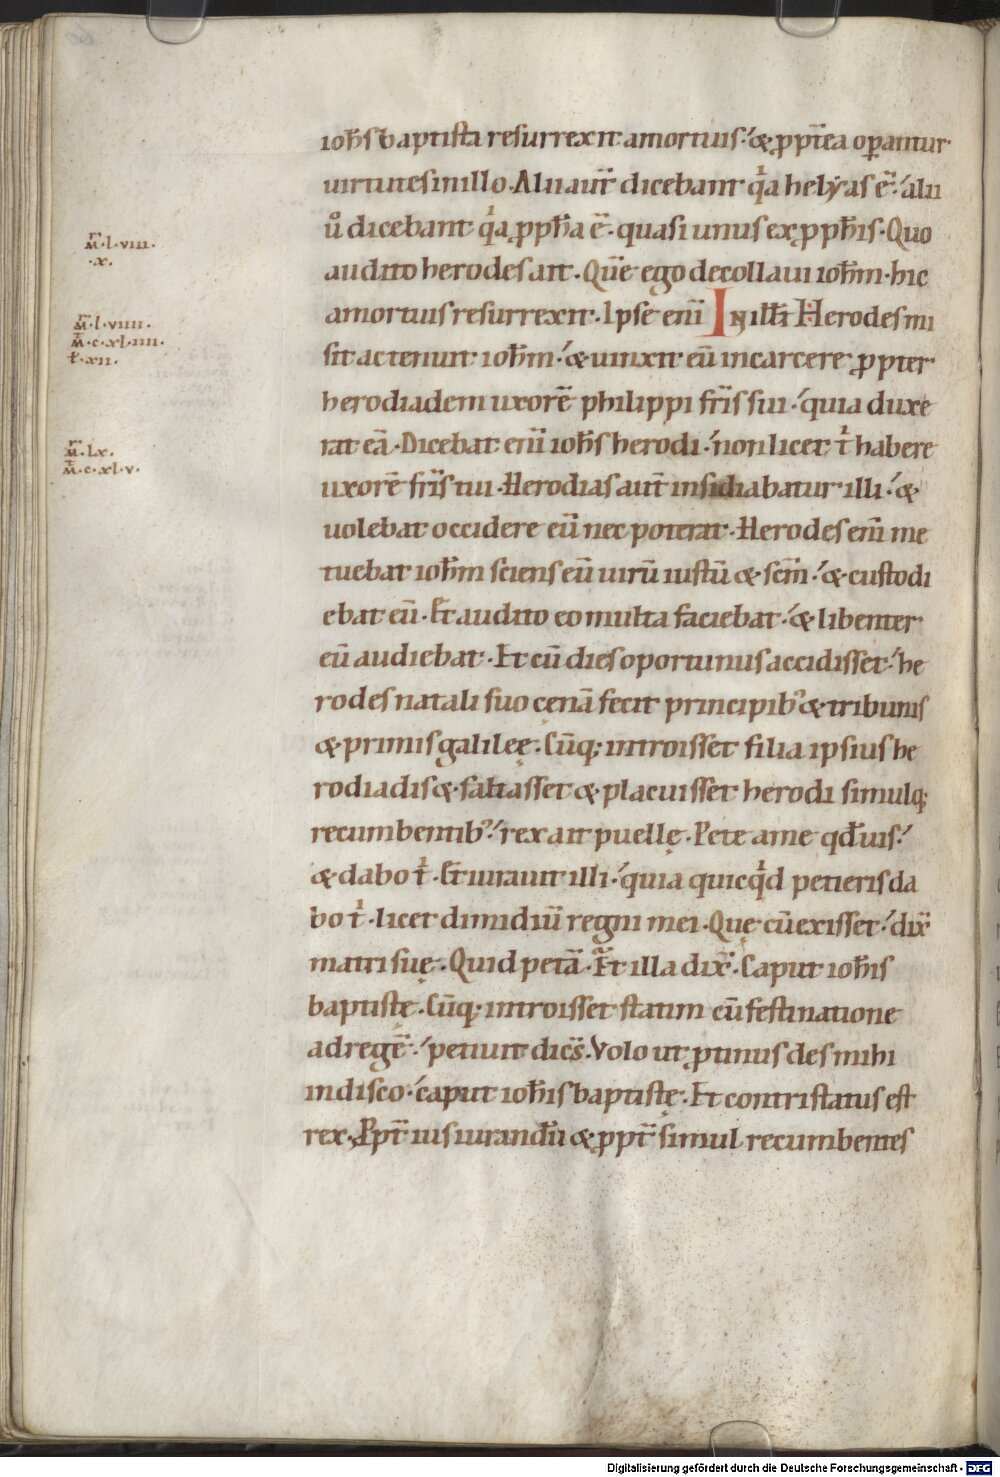 ioħs baptista resurrexit a mortuis. & ꝓpt̄ea oꝑantur
uirtutes in illo. Alii aut̄ dicebant qͥa helẏas ē. alii
ů dicebant qͥa ꝓpħa ē. quasi unus ex ꝓpħis. Quo
audito herodes ait. Quē ego decollaui ioħm. hic
a mortuis resurrexit. Ipse eni̅ In illt̄ Herodes mi
sit ac tenuit ioħm. & uinxit eū in carcere ꝓpter
herodiadem uxorē philippi fr̄is sui. quia duxe
rat eā. Dicebat eni̅ ioħs herodi. non licet tͥ habere
uxorē fr̄is tui. Herodias aut̄ insidiabatur illi. &
uolebat occidere eū nec poterat. Herodes eni̅ me
tuebat ioħm sciens eū uirū iustū & sc̄m. & custodi
ebat eū. Et audito eo multa faciebat. & libenter
eū audiebat. Et cū dies oportunus accidisset. he
rodes natali suo cęnā fecit principib᾽ & tribunis
& primis galileę. Cūq; introisset filia ipsius he
rodiadis & saltasset & placuisset herodi simulq;
recumbentib᾽. rex ait puellę. Pete a me qd̄ uis.
& dabo tͥ. Et iurauit illi. quia quicqͥd petieris da
bo tͥ. licet dimidiū regni mei. Quę cū exisset. dix̄
matri suę. Quid petā. Et illa dix̄. Caput ioħis
baptistę. Cūq; introisset statim cū festinatione
ad regē. petiuit dic̄s. Volo ut ꝓtinus des mihi
in disco. caput ioħis baptistę. Et contristatus est
rex. Ꝓpt̄ iusiurandū & ꝓpt̄ simul recumbentes
m̄.l.viii.
.x.
m̄.l.viiii.
m̄.c.xl.iiii.
ł.xii.
m̄.lx.
m̄.c.xl.v.
Digitalisierung gefördert durch die Deutsche Forschungsgemeinschaft - DFG